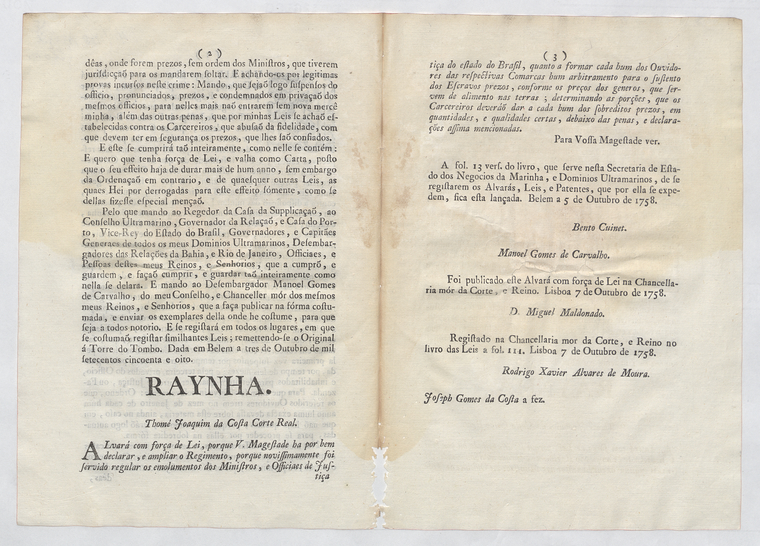 ( 2 )
dêas, onde forem prezos, sem ordem dos Ministros, que tiverem
jurisdicçaõ para os mandarem soltar. E achando-os por legitimas
provas incursos neste crime: Mando, que sejaõ logo suspensos do
officio, pronunciados, prezos, e condemnados em privaçaõ dos
mesmos officios, para nelles mais naõ entrarem sem nova mercê
minha, além das outras penas, que por minhas Leis se achaõ es-
tabelecidas contra os Carcereiros, que abusaõ da fidelidade, com
que devem ter em segurança os prezos, que lhes saõ confiados.
E este se cumprirá taõ inteiramente, como nelle se contém:
E quero que tenha força de Lei, e valha como Carta, posto
que o seu effeito haja de durar mais de hum anno, sem embargo
da Ordenaçaõ em contrario, e de quaesquer outras Leis, as
quaes Hei por derrogadas para este effeito sómente, como se
dellas fizesse especial mençaõ.
Pelo que mando ao Regedor da Casa da Supplicaçaõ, ao
Conselho Ultramarino, Governador da Relaçaõ, e Casa do Por-
to, Vice-Rey do Estado do Brasil, Governadores, e Capitães
Generaes de todos os meus Dominios Ultramarinos, Desembar-
gadores das Relações da Bahia, e Rio de Janeiro, Officiaes, e
Pessoas destes meus Reinos, e Senhorios, que a cumpraõ, e
guardem, e façaõ cumprir, e guardar taõ inteiramente como
nella se delara. E mando ao Desembargador Manoel Gomes
de Carvalho, do meu Conselho, e Chanceller mór dos mesmos
meus Reinos, e Senhorios, que a faça publicar na fórma costu-
mada, e enviar os exemplares della onde he costume, para que
seja a todos notorio. E se registará em todos os lugares, em que
se costumaõ registar similhantes Leis; remettendo-se o Original
á Torre do Tombo. Dada em Belem a tres de Outubro de mil
setecentos cincoenta e oito.
RAYNHA.
Thomé Joaquim da Costa Corte Real.
ALvará com força de Lei, porque V. Magestade ha por bem
declarar, e ampliar o Regimento, porque novissimamente foi
servido regular os emolumentos dos Ministros, e Officiaes de Jus-
tiça
( 3 )
tiça do estado do Brasil, quanto a formar cada hum dos Ouvido-
res das respectivas Comarcas hum arbitramento para o sustento
dos Escravos prezos, conforme os preços dos generos, que ser-
vem de alimento nas terras; determinando as porções, que os
Carcereiros deveráõ dar a cada hum dos sobreditos prezos, em
quantidades, e qualidades certas, debaixo das penas, e declara-
ções assima mencionadas.
Para Vossa Magestade ver.
A fol. 13 vers. do livro, que serve nesta Secretaria de Esta-
do dos Negocios da Marinha, e Dominios Ultramarinos, de se
registarem os Alvarás, Leis, e Patentes, que por ella se expe-
dem, fica esta lançada. Belem a 5 de Outubro de 1758.
Bento Cuinet.
Manoel Gomes de Carvalho.
Foi publicado este Alvará com força de Lei na Chancella-
ria mór da Corte, e Reino. Lisboa 7 de Outubro de 1758.
D. Miguel Maldonado.
Registado na Chancellaria mor da Corte, e Reino no
livro das Leis a fol. 111. Lisboa 7 de Outubro de 1758.
Rodrigo Xavier Alvares de Moura.
Joseph Gomes da Costa a fez.